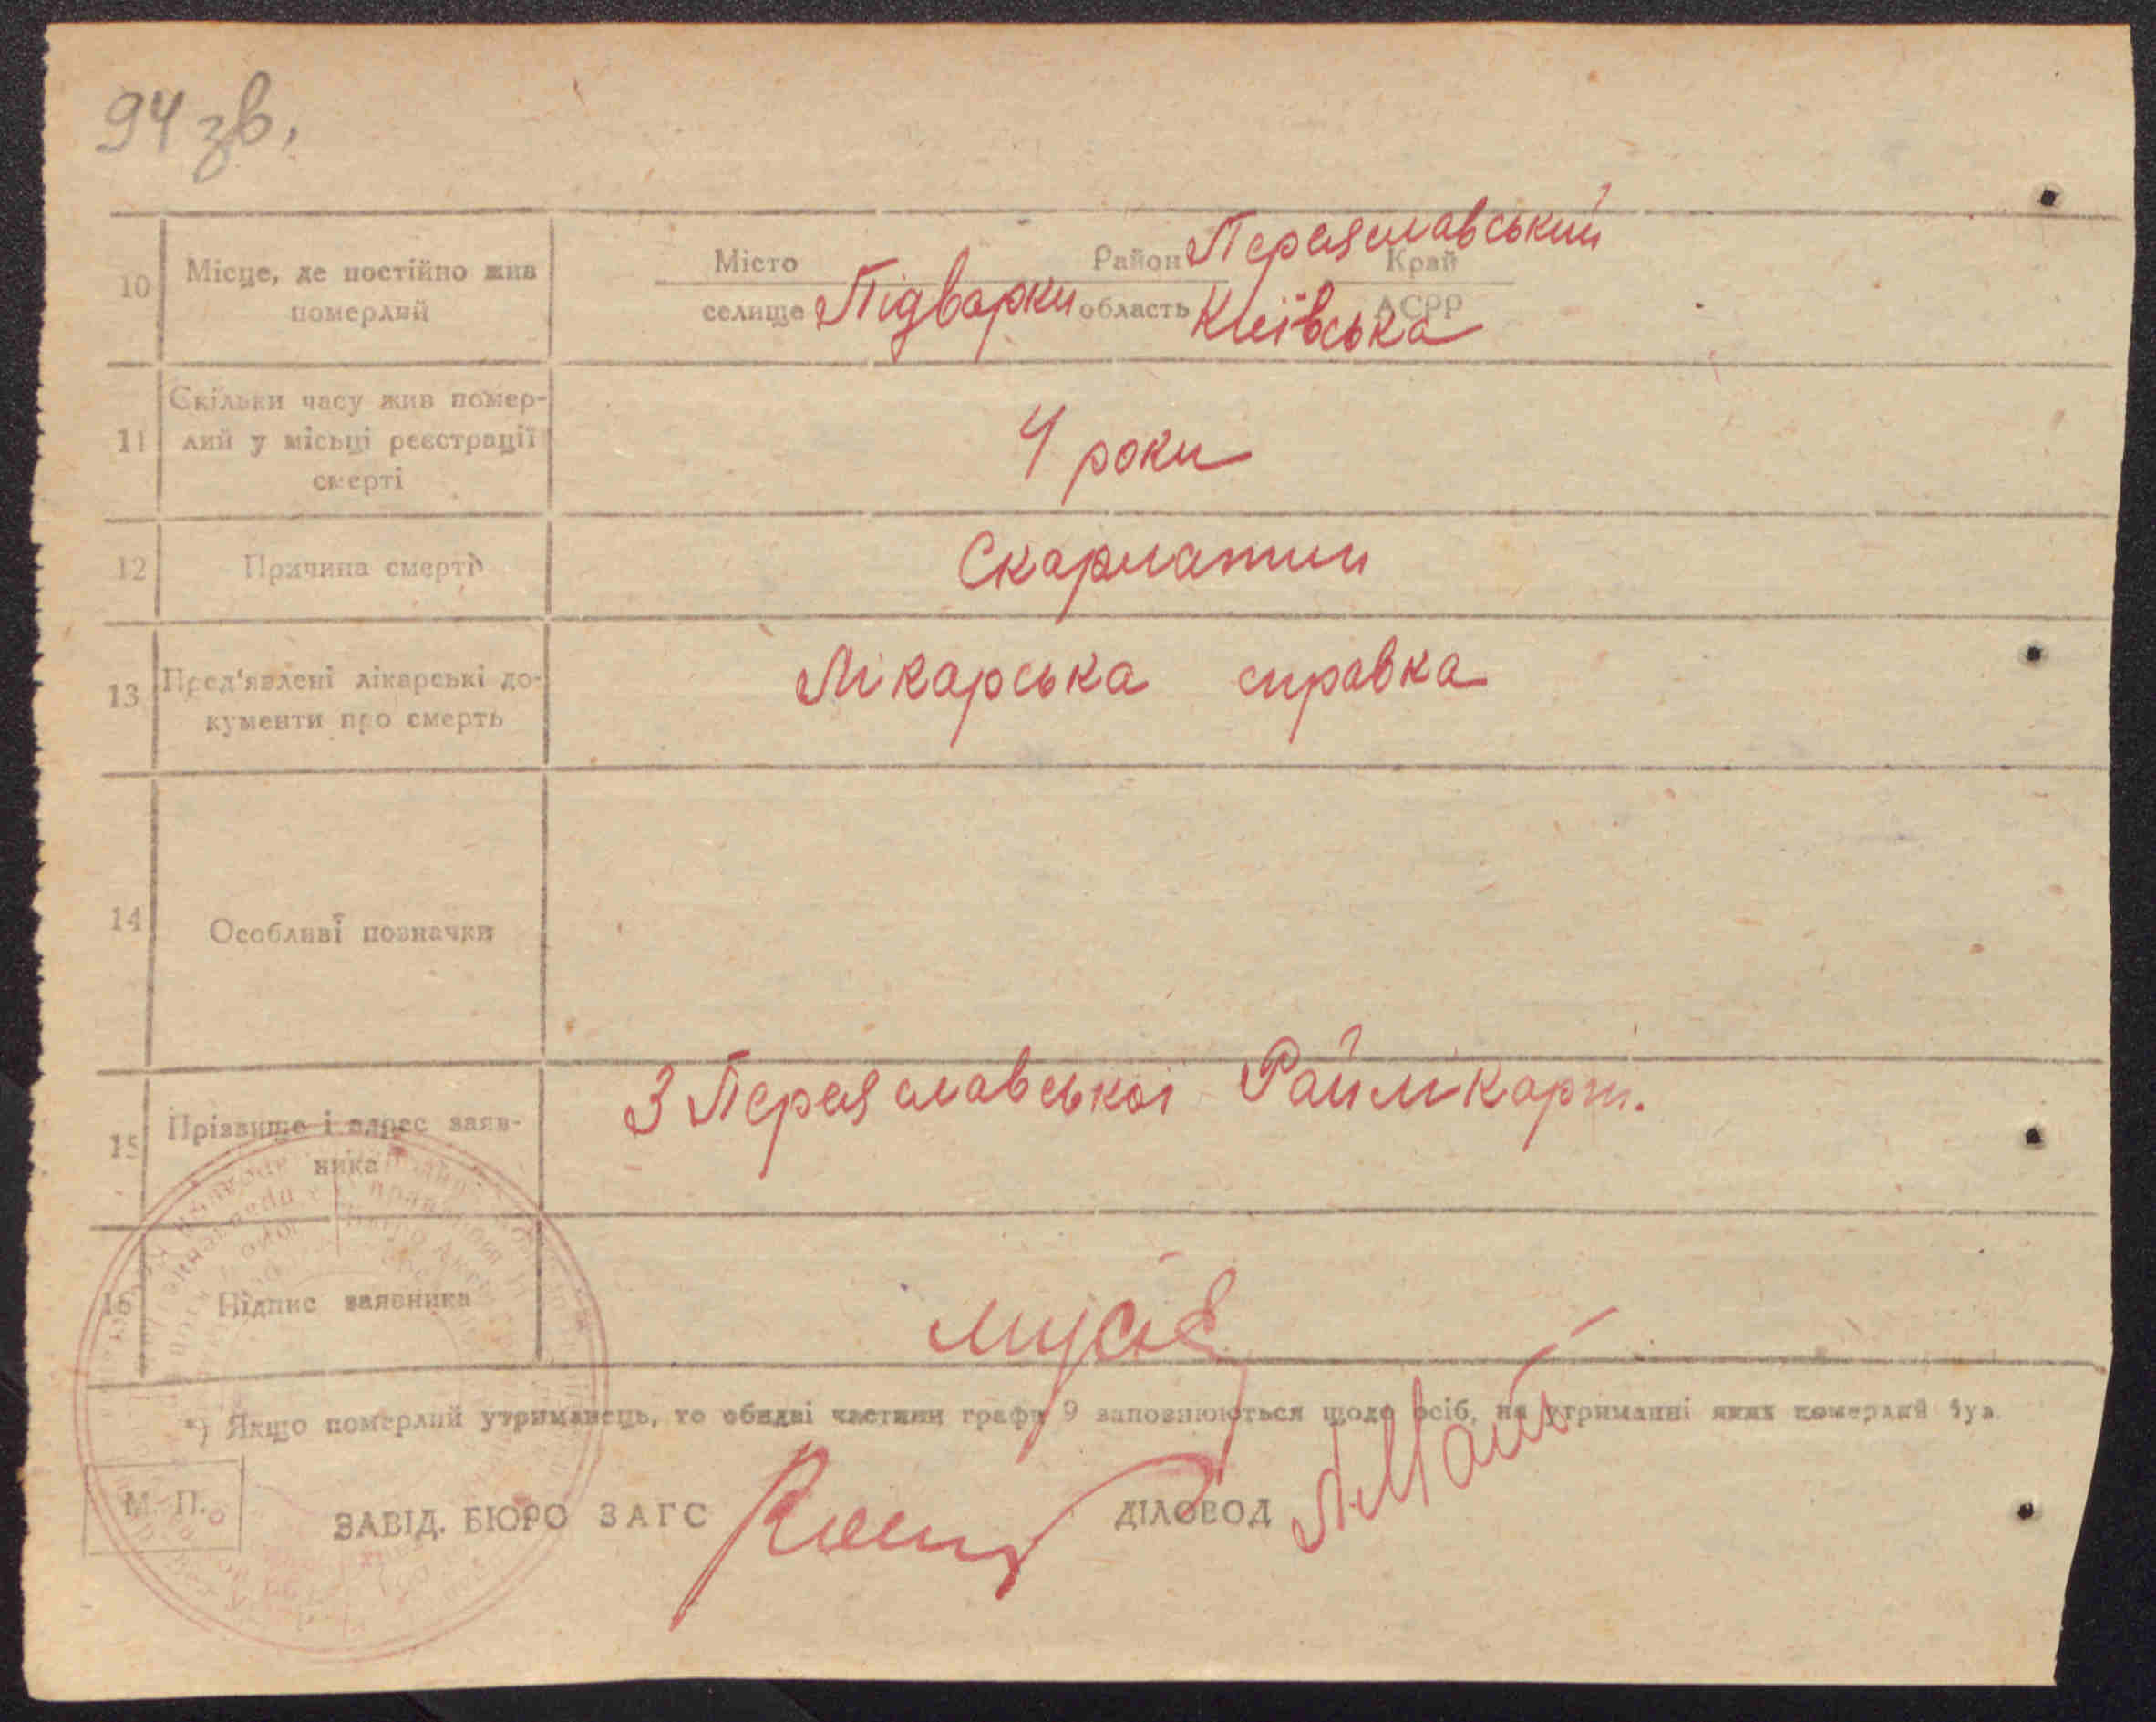 94 зв.
Місто Район Переяславський Край
селище Підварки область Київська АСРР
10 Місце, де постійно жив
померлий
11 Скільки часу жив помер-
лий у місьці реєстрації
смерті
4 роки
12 Причина смерті Скарлатин
13 Пред'явлені лікарські до-
кументи про смерть
Лікарська справка
14 Особливі позначки
15 Прізвище і адрес заяв-
ника
З Переяславської Райлікарн.
16 Підпис заявника
*) Якщо померлий утриманець, то обидві частини графи 9 заповнюються щодо осіб, на утриманні яких померлий був
М. П. ЗАВІД. БЮРО ЗАГС ДІЛОВОД